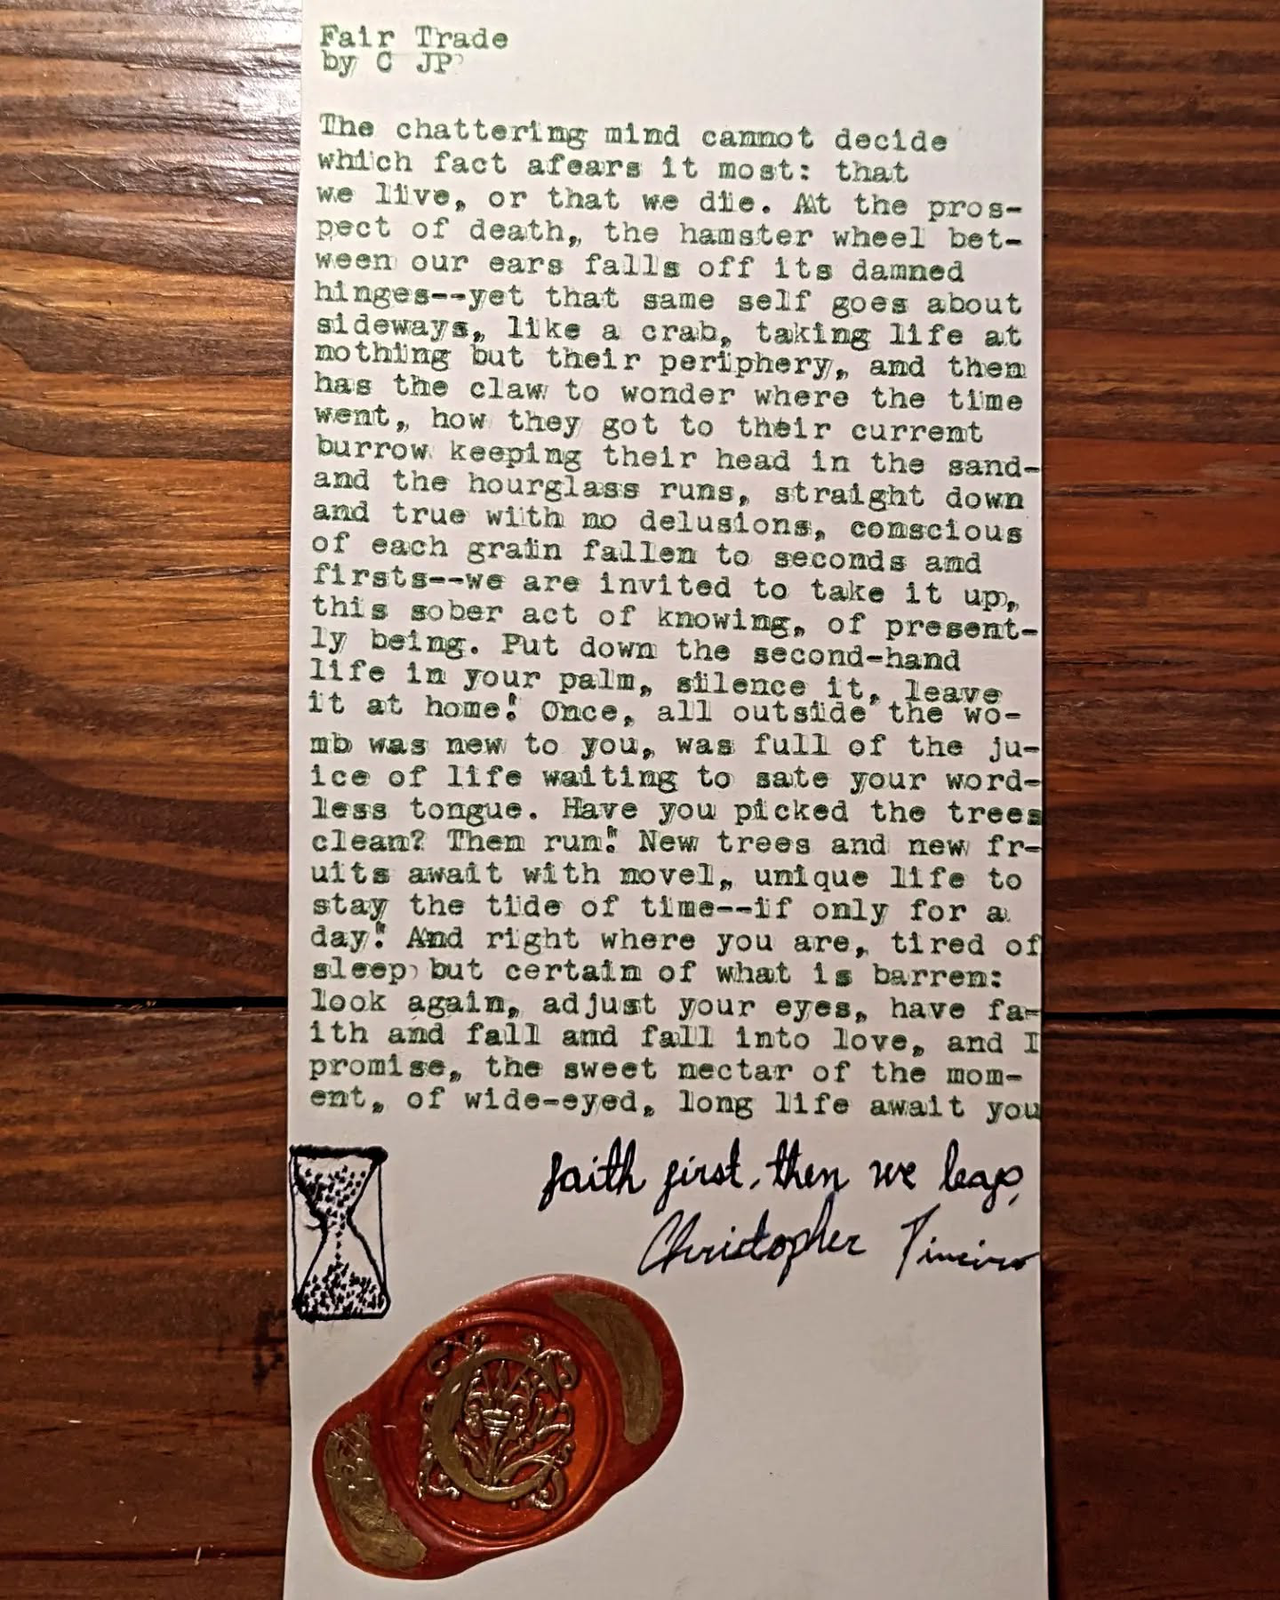 Fair Trade
by C JP
The chattering mind cannot decide
which fact afears it most: that
we live, or that we die. At the pros-
pect of death, the hamster wheel bet-
ween our ears falls off its damned
hinges--yet that same self goes about
sideways, like a crab, taking life at
nothing but their periphery, and then
has the claw to wonder where the time
went, how they got to their current
burrow keeping their head in the sand-
and the hourglass runs, straight down
and true with no delusions, conscious
of each grain fallen to seconds and
firsts--we are invited to take it up,
this sober act of knowing, of present-
ly being. Put down the second-hand
life in your palm, silence it, leave
it at home! Once, all outside the wo-
mb was new to you, was full of the ju-
ice of life waiting to sate your word-
less tongue. Have you picked the trees
clean? Then run! New trees and new fr-
uits await with novel, unique life to
stay the tide of time--if only for a
day! And right where you are, tired of
sleep but certain of what is barren:
look again, adjust your eyes, have fa-
ith and fall and fall into love, and I
promise, the sweet nectar of the mom-
ent, of wide-eyed, long life await you
faith first, then we leap,
Christopher Pineiro
C